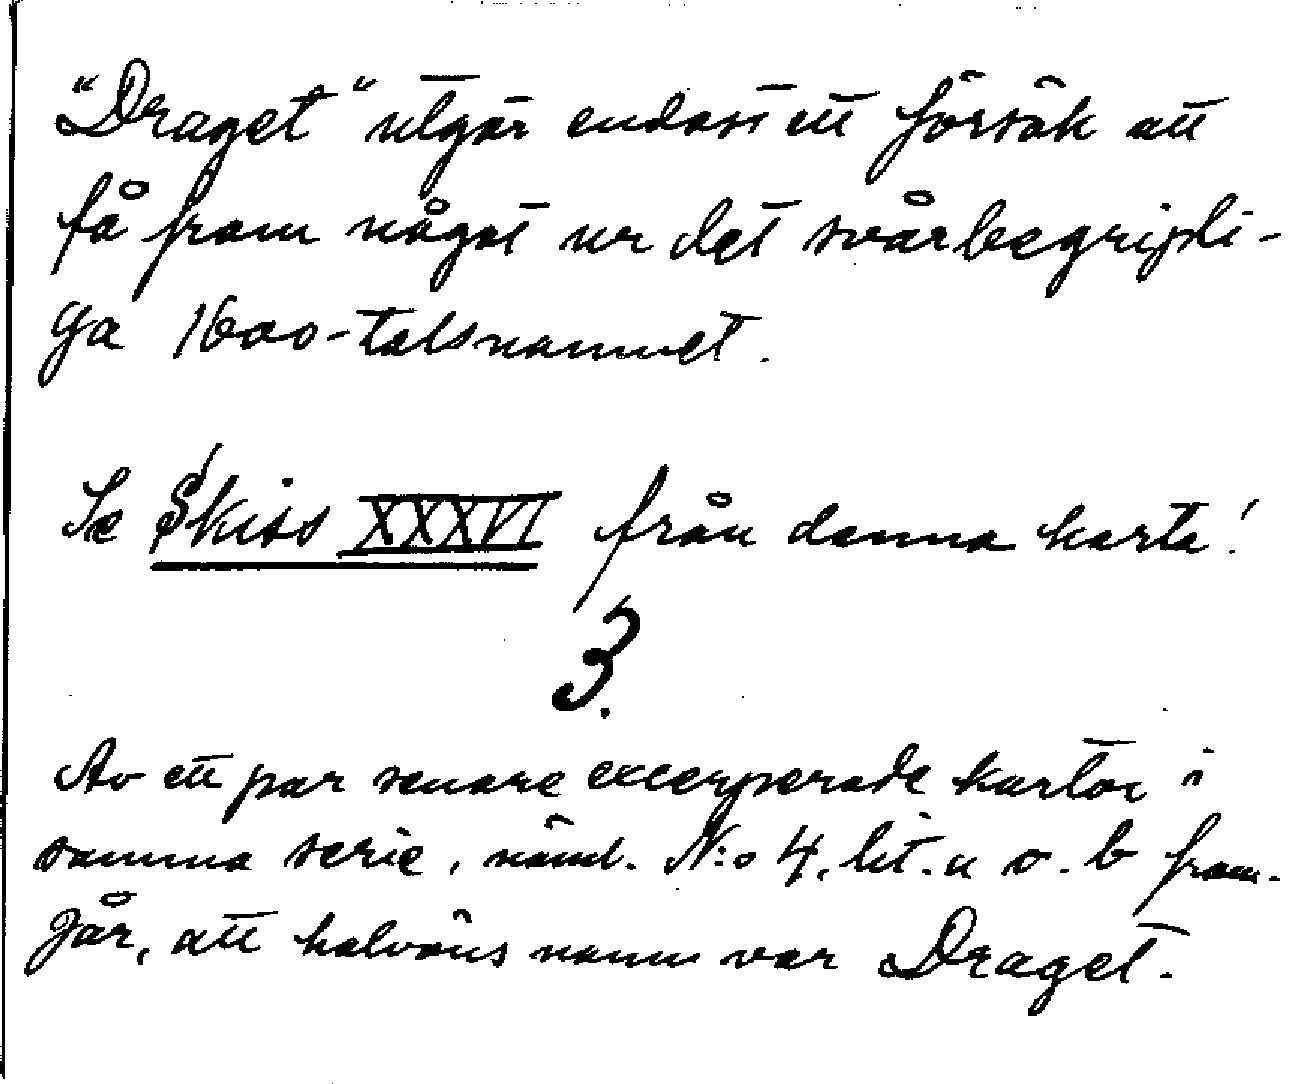 "Draget" utgör endast ett försök att
få fram något ur det svårbegripli-
ga 1600-talsnamnet.
Se Skiss XXXVI från denna karta!
3.
Av ett par senare excerperade kartor i
samma serie, näml. N:o 4, lit. a o. b fram-
går, att halvöns namn var Draget.